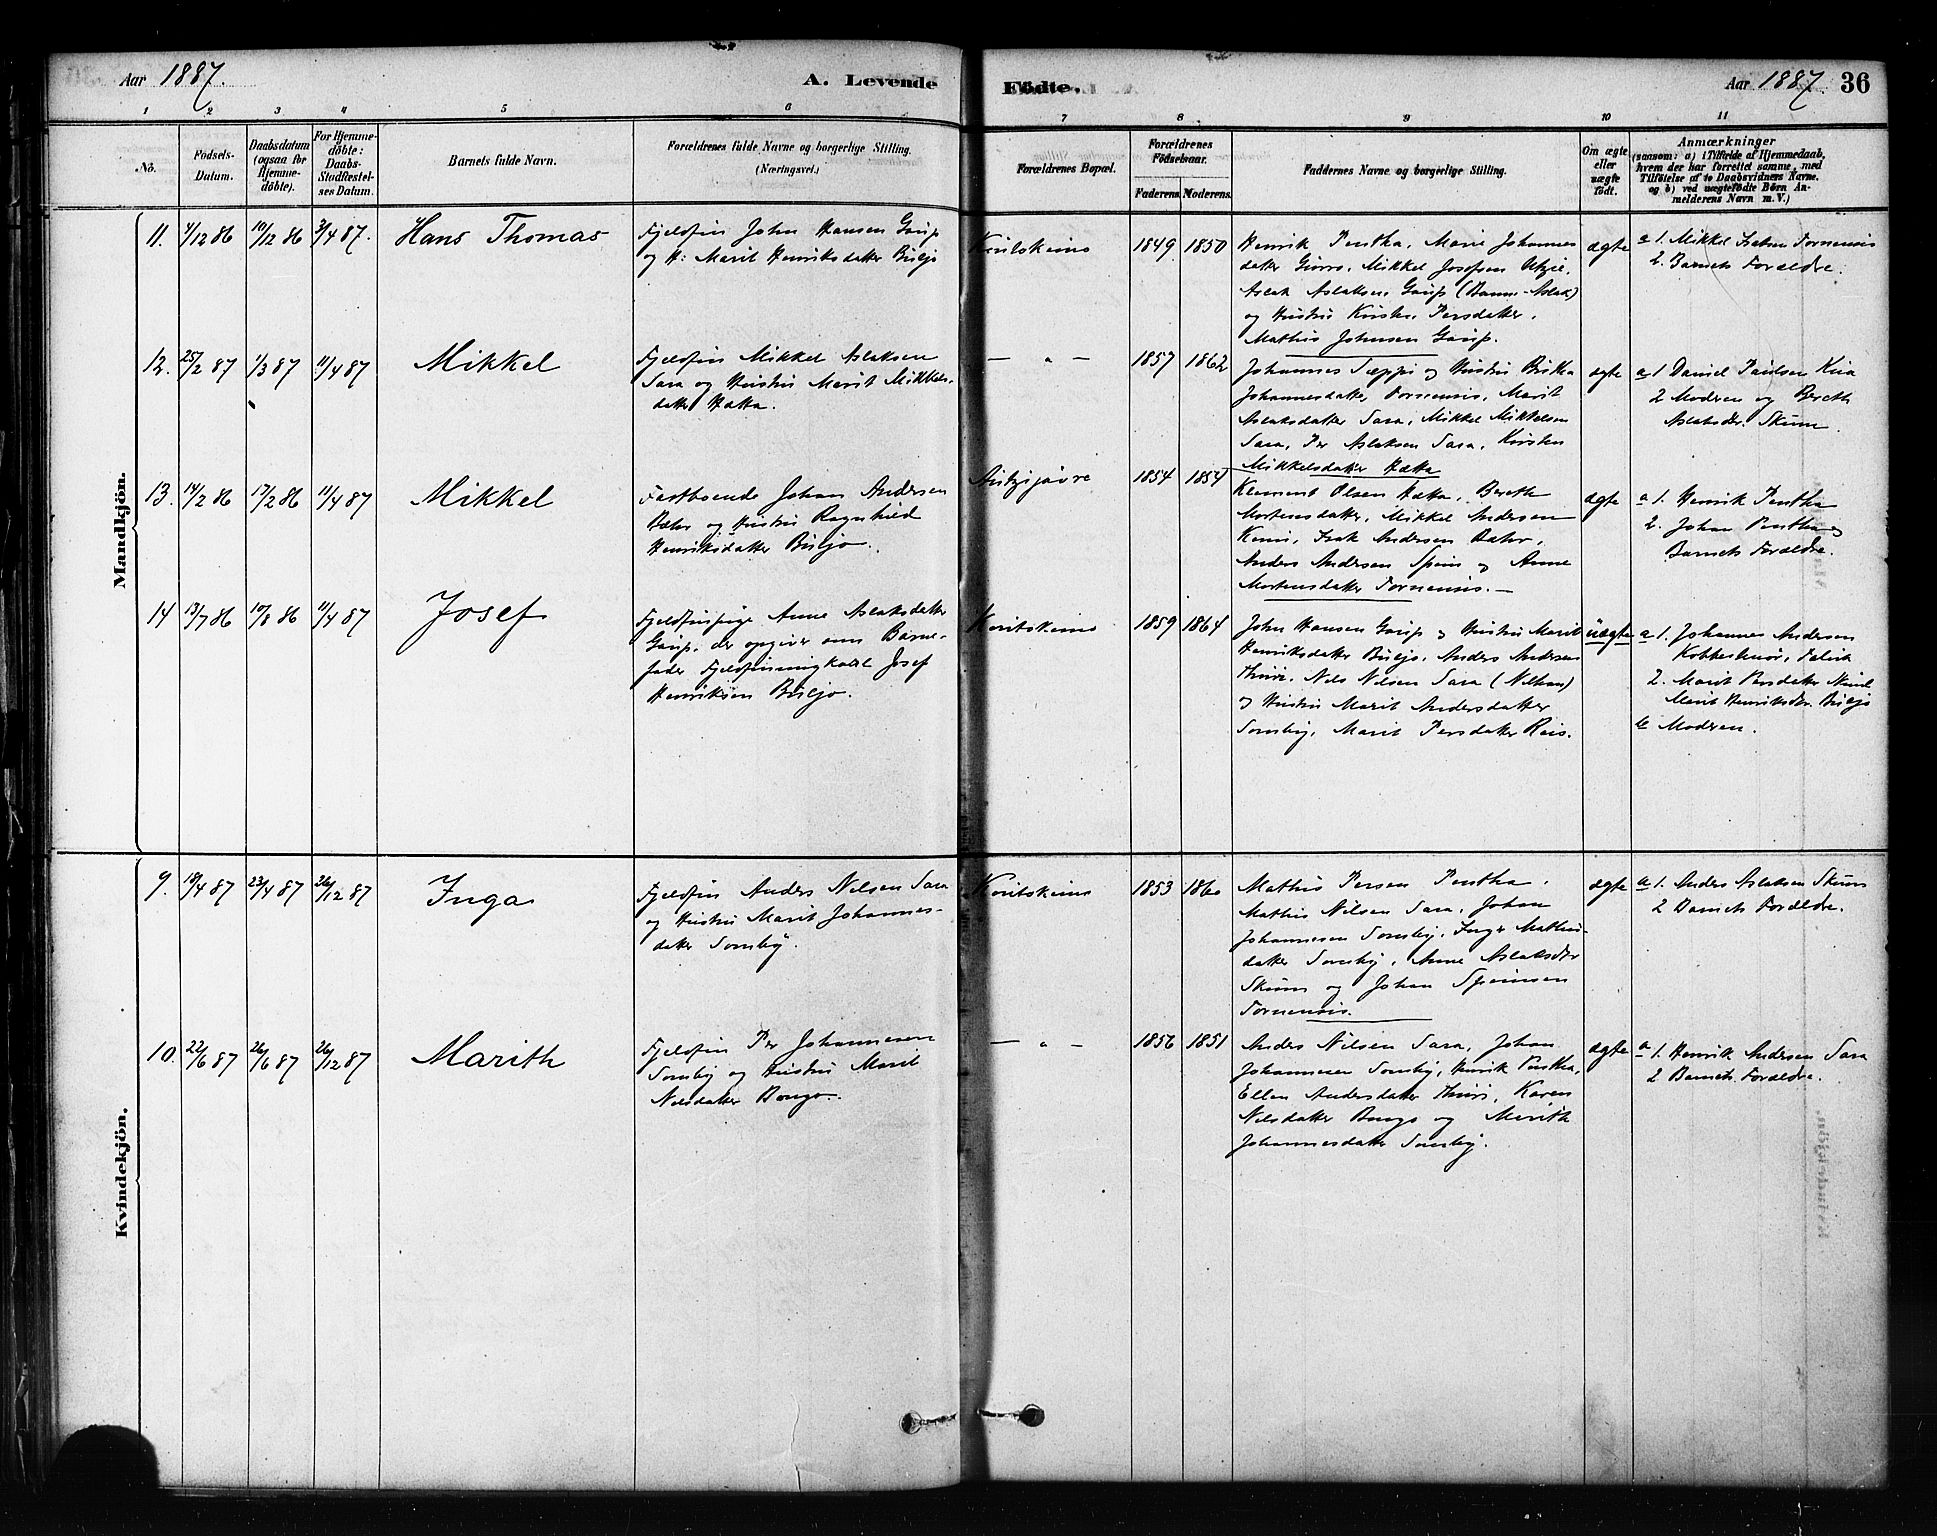 Aar 1887. A. Levende
Födte. Aar 1887. 36
1 2 3 4 5 6 7 8 9 10 11
No. Födsels-Datum. Daabsdatum (ogsaa for Hjemmedöbte). For Hjemmedöbte: Daabs-Stadfæstelses Datum. Barnets fulde Navn. Forældrenes fulde Navne og borgerlige Stilling. (Næringsvei.)
Forældrenes Bopæl. Forældrenes Födselsaar. Faderens. Moderens. Faddernes Navne og borgerlige Stilling. Om ægte eller uægte födt. Anmærkninger
(saasom: a) i Tilfælde af Hjemmedaab, hvem der har forrettet samme, med Tilföielse af to Daabsvidners Navne. og b) ved uægtefödte Börn Anmelderens Navn m. V.)
Mandkjön.
11. 4/12 86 10/12 86 3/4 87. Hans Thomas
Fjeldfin John Hansen Gaup
og H: Marit Henriksdatter Buljo
1849 1850
Henrik Pentha, Marie Johannes
datter Mikkel Josefsen Utzie,
Aslak Aslaksen Gaup (Banne-Aslak)
og Hustru Kirsten Persdatter,
Mathis Johnsen Gaup.
ægte
a 1. Mikkel Isaksen Fornensis
2. Barnets Forældre.
12. 25/2 87 1/3 87 11/4 87 Mikkel
Fjeldfin Mikkel Aslaksen
Sara og Hustru Marit Mikkels-
datter Hætta.
— " — 1857 1862
Johannes Sæppi og Hustru Britha
Johannesdatter Fornensis, Marit
Aslaksdatter Sara, Mikkel Mikkelsen
Sara, Per Aslaksen Sara, Kirsten
Mikkelsdatter Hætta
ægte
a 1 Daniel Paulsen
2 Moderen og Bereth
Aslaksdr. Skum.
13. 14/2 86 17/2 86 11/4 87 Mikkel
Fastboende Johan Andersen
Bæhr og Hustru Ragnhild
Henriksdatter Buljo.
1854 1854
Klement Olsen Hætta, Bereth
Mortensdatter, Mikkel Andersen
Kemi, Isak Andersen Bæhr,
Anders Andersen Spein og Anne
Mortensdatter Fornensis. —
ægte
a 1. Henrik Pentha
2. Johan Pentha og
Barnets Forældre.
14 13/7 86 10/8 86 11/4 87 Josef
Fjeldfinpige Anne Aslaksdatter
Gaup, der opgiver som Barne-
fader Fjeldfinungkarl Josef
Henriksen Buljo.
Koutokeino 1859 1864
John Hansen Gaup og Hustru Marit
Henriksdatter Buljo, Anders Andersen
Thuri, Nils Nilsen Sara
og Hustru Marit Andersdatter
Somby, Marit Persdatter
uægte
a 1. Johannes Andersen
2. Marit Persdatter
Marit Henriksdr. Buljo
b Moderen.
Kvindekjön.
9. 18/4 87 23/4 87 26/12 87 Inga
Fjeldfin Anders Nilsen Sara
og Hustru Marit Johannes-
datter Somby.
Koutokeino 1853 1860
Mathis Persen Pentha,
Mathis Nilsen Sara, Johan
Johannesen Somby, Inger Mathis-
datter Somby, Anne Aslaksdr
Skum og Johan Speinsen
Fornensis.
ægte
a 1. Anders Aslaksen Skum
2 Barnets Forældre.
10. 22/6 87 26/6 87 26/12 87 Marith
Fjeldfin Per Johannesen
Somby og Hustru Marit
Nilsdatter Bongo.
— " — 1856 1851
Anders Nilsen Sara, Johan
Johannesen Somby, Henrik Pentha,
Ellen Andersdatter Thuri, Karen
Nilsdatter Bongo og Marith
Johannesdatter Somby.
ægte
a 1. Henrik Andersen Sara
2 Barnets Forældre.